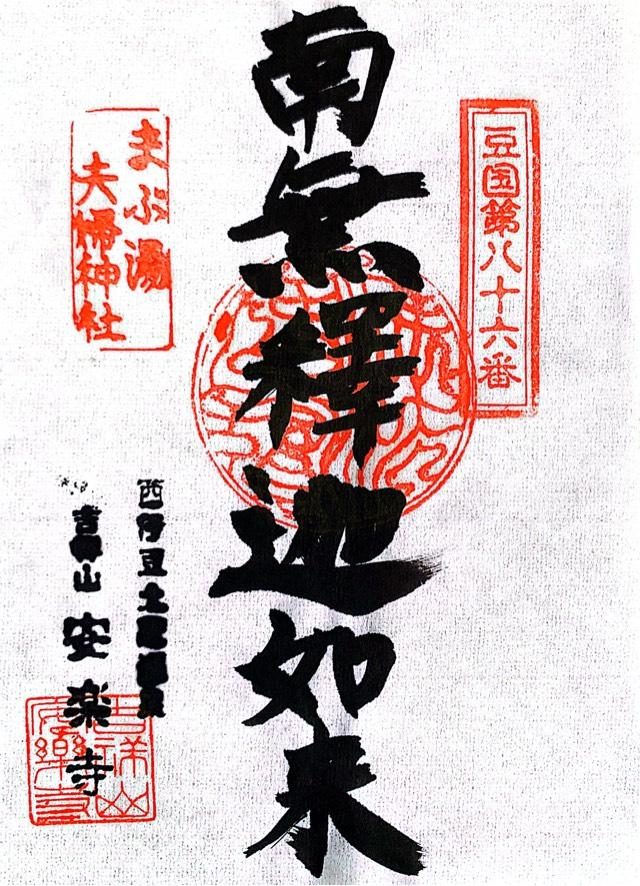 豆国第八十六番
南無釋迦如来
まぶ湯
夫婦神社
西伊豆土肥温泉
吉祥山 安楽寺